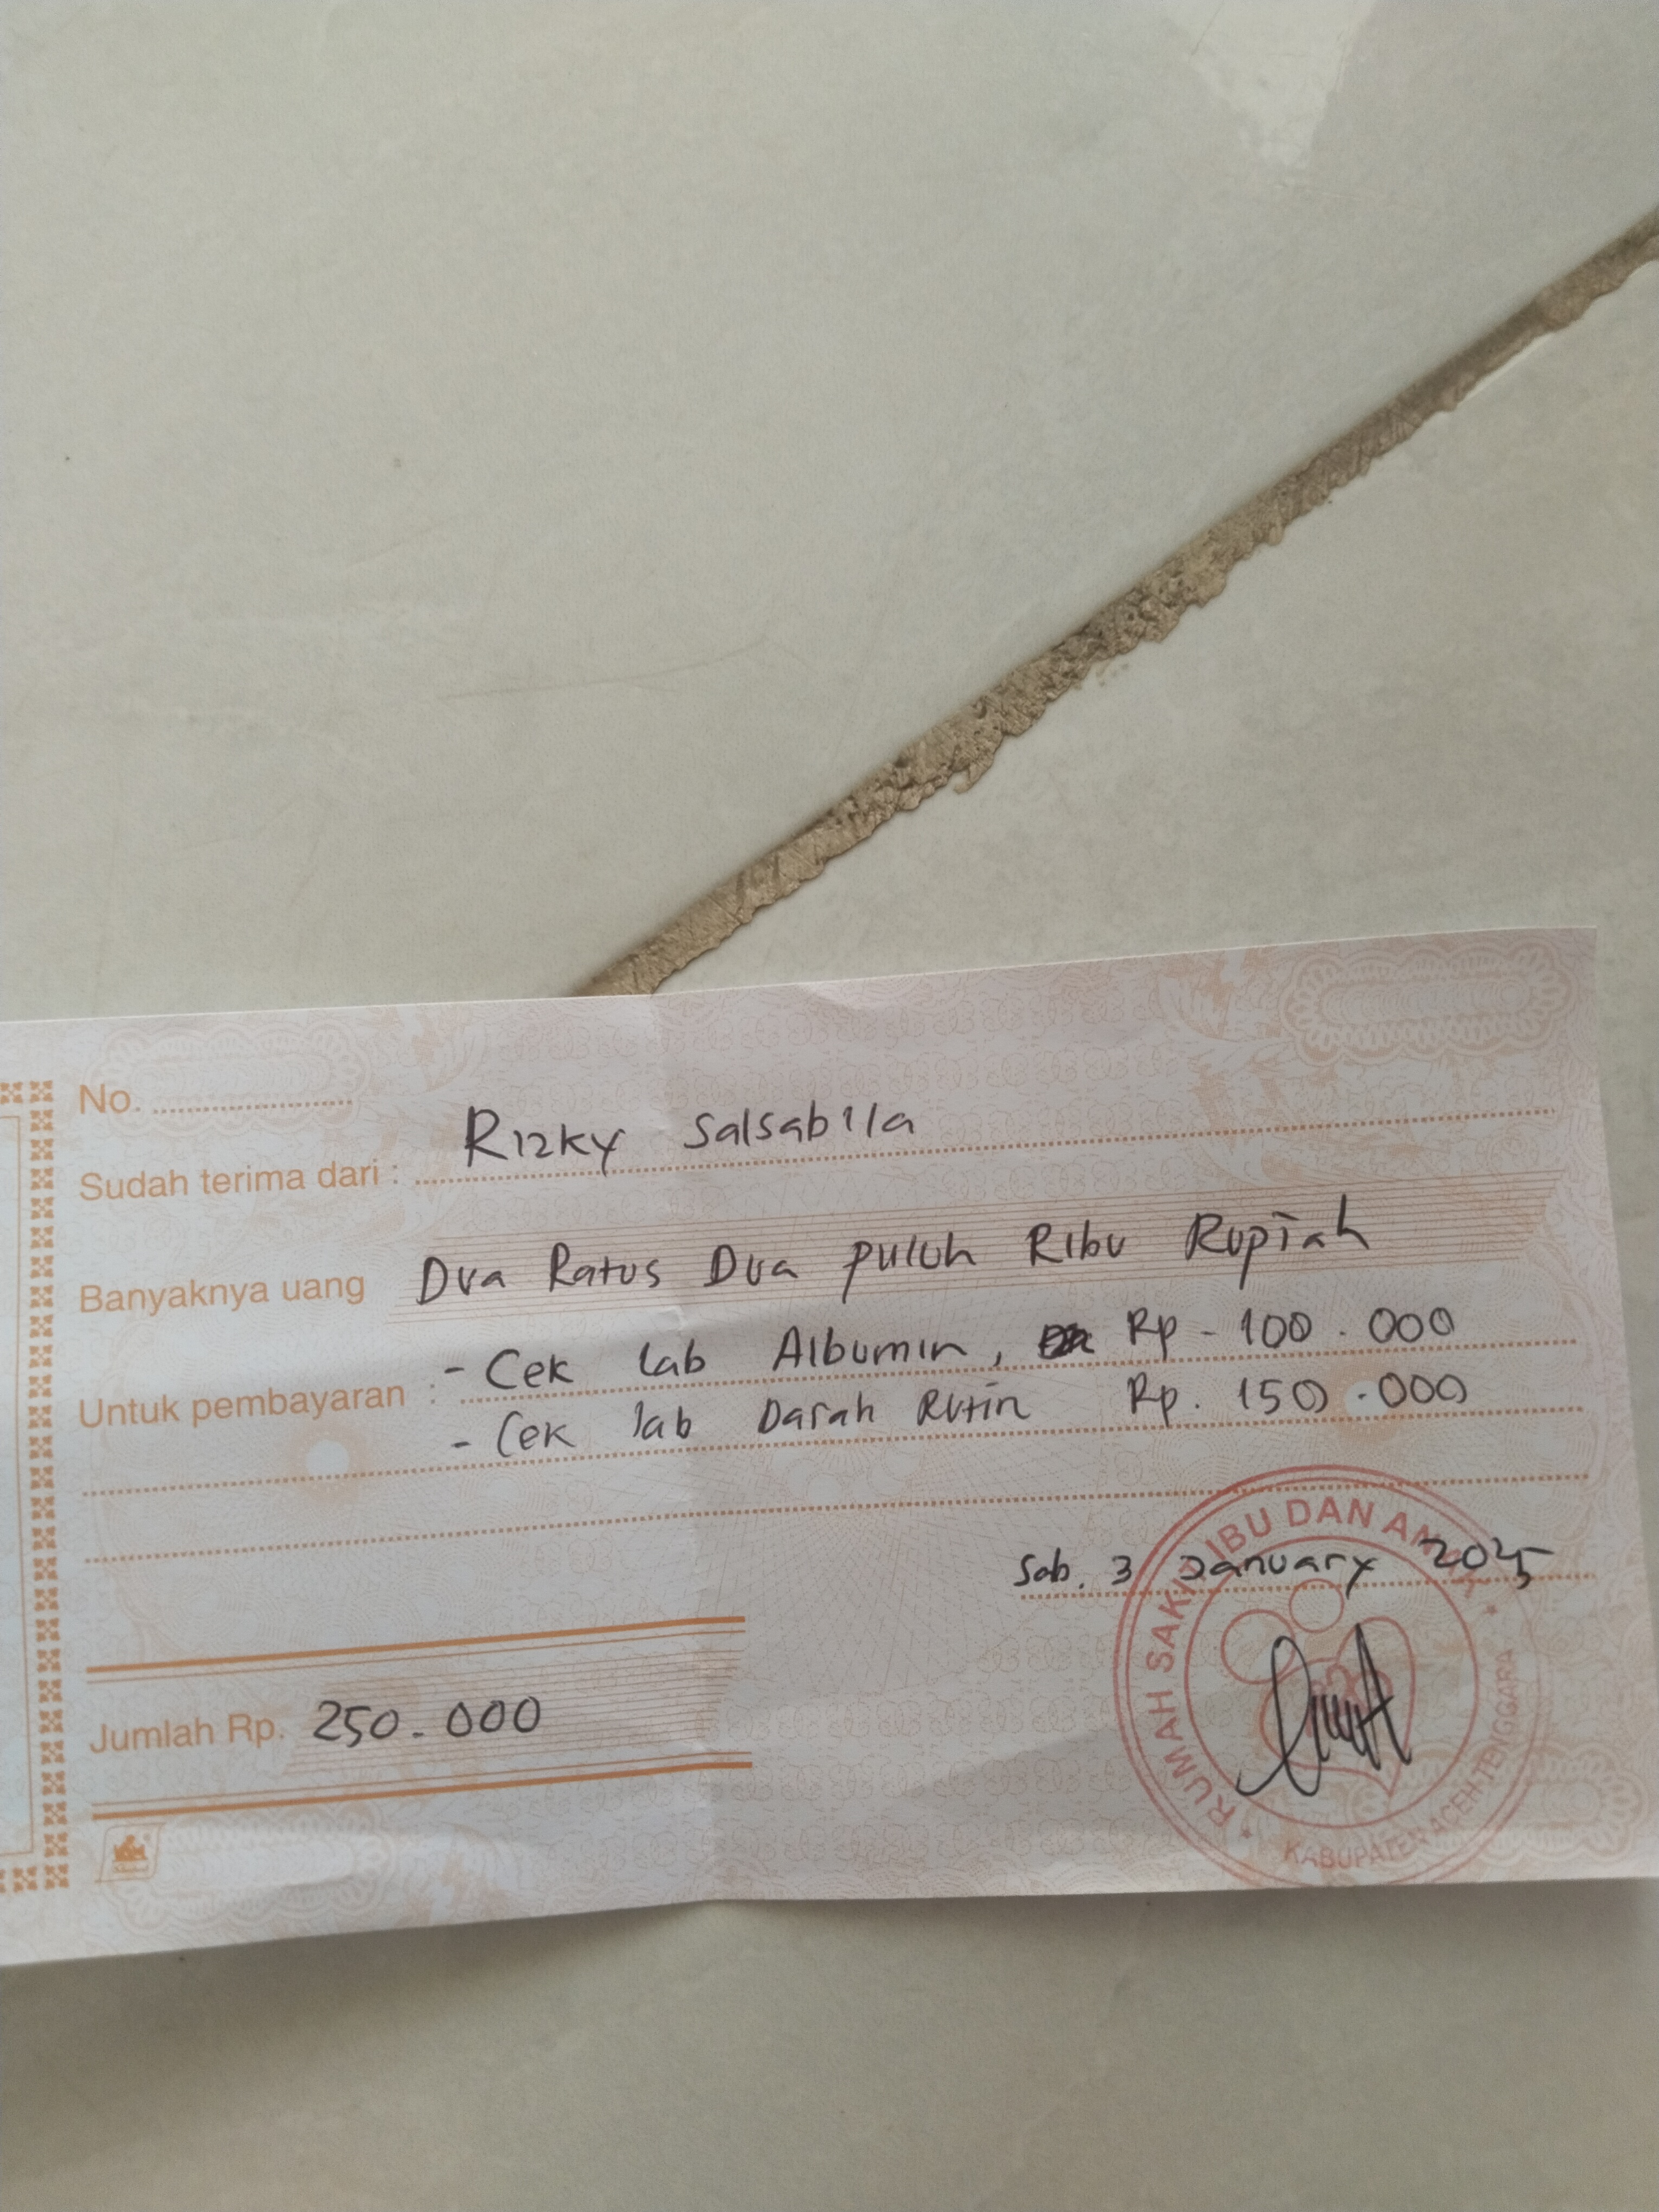 No. ....................
Sudah terima dari : Rizky Salsabila
Banyaknya uang Dua Ratus Dua puluh Ribu Rupiah
Untuk pembayaran : - Cek lab Albumin, Rp - 100.000
- Cek lab Darah Rutin Rp. 150.000
Sab. 3 January 2025
Jumlah Rp. 250.000
RUMAH SAKIT IBU DAN ANAK
KABUPATEN ACEH TENGGARA